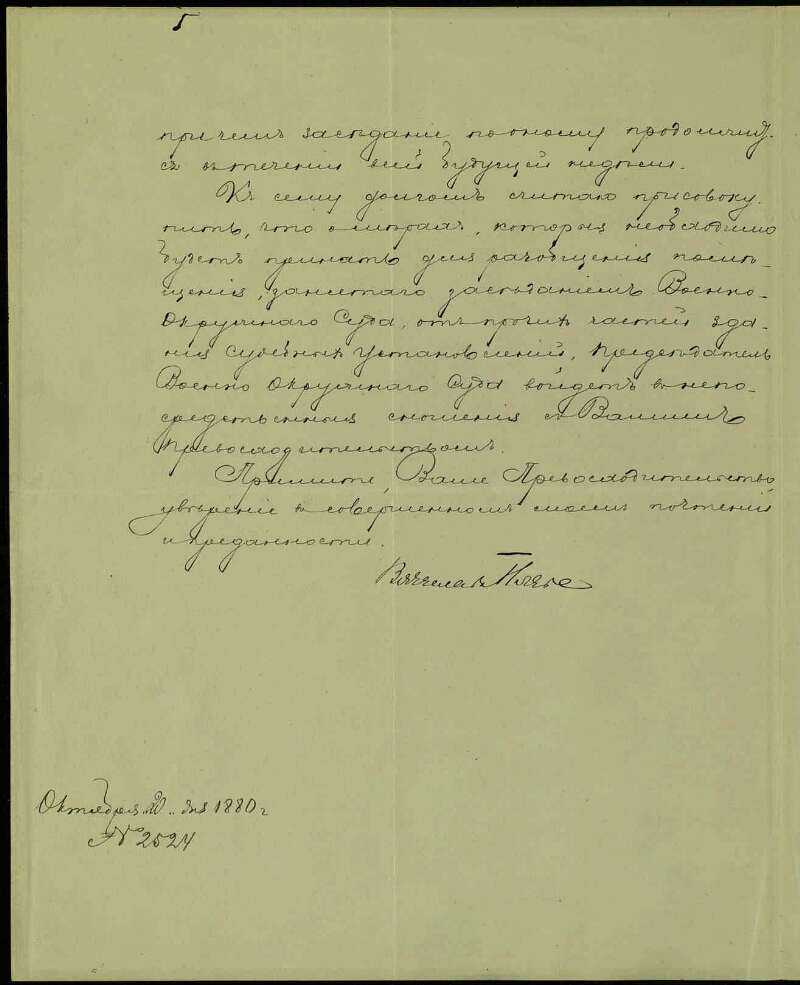 5
причемъ заседание по оному продолжит-
ся въ течении всей будущей недели.
Къ сему долгомъ считаю присовоку-
пить, что о мерахъ, которыя необходимо
будетъ принять для разобщения поме-
щения, занятаго заседаниемъ Военно-
Окружнаго Суда, отъ прочихъ частей зда-
ния Судебныхъ Установлений, Председатель
Военно Окружнаго Суда войдетъ въ непо-
средственныя сношения съ Вашимъ
Превосходительствомъ.
Примите, Ваше Превосходительство,
уверение въ совершенномъ моемъ почтении
и преданности.
Вячеслав Плеве
Октября 20 дня 1880 г
№ 2524